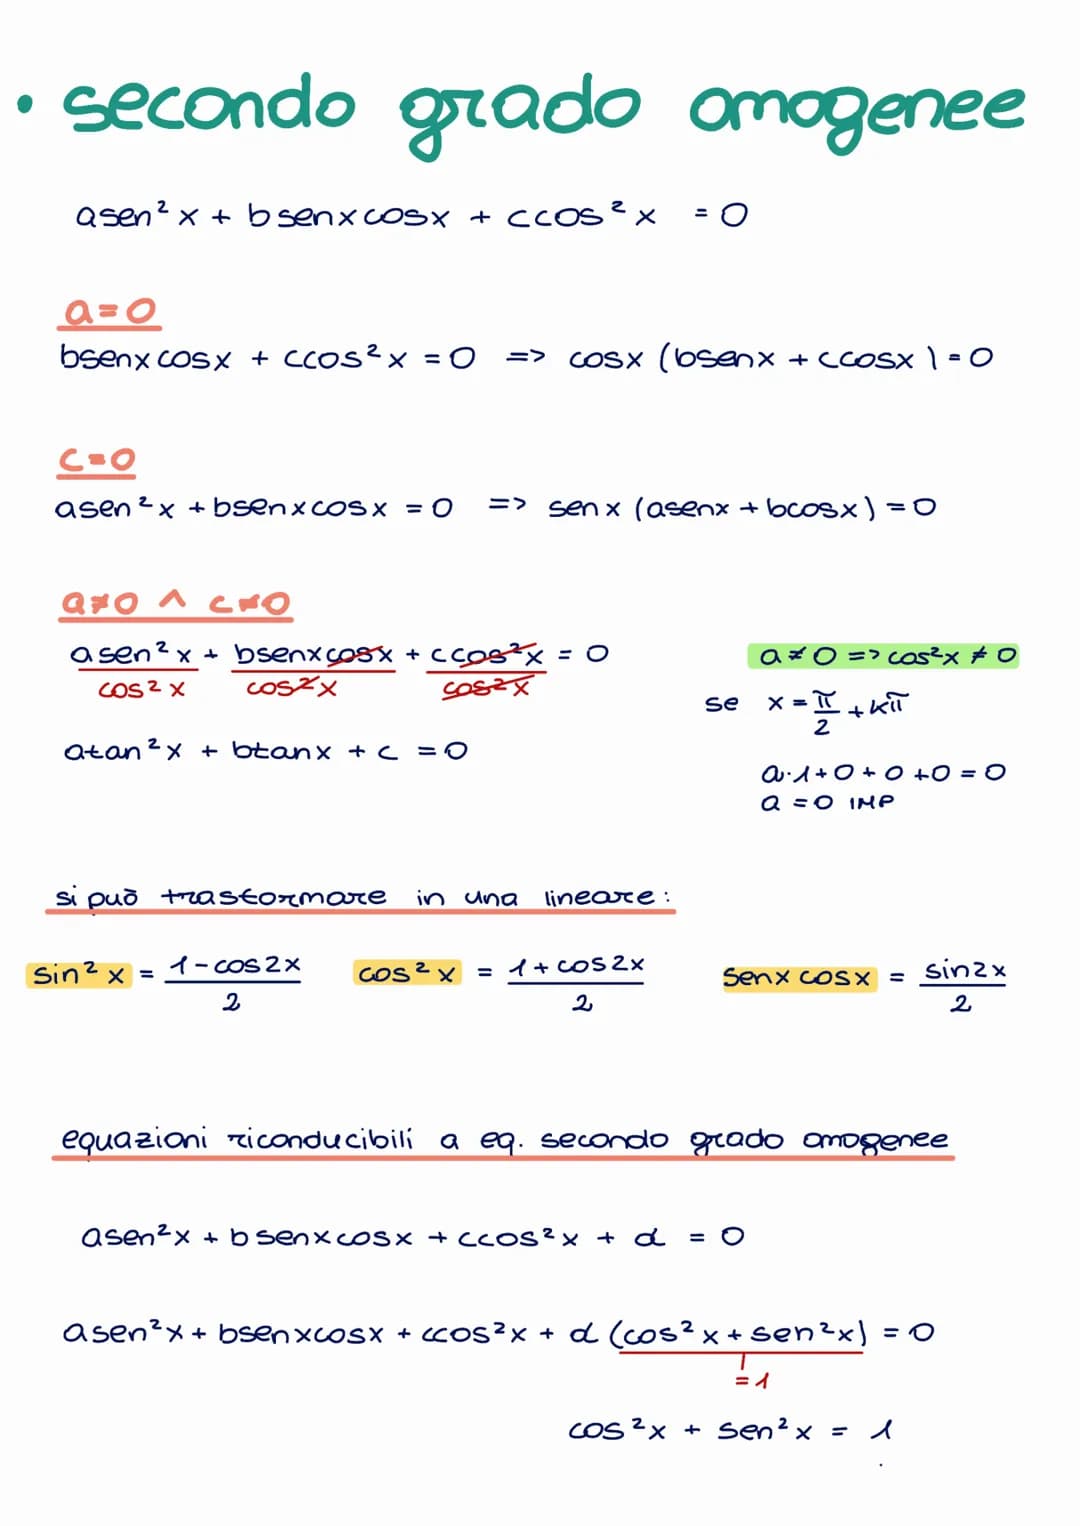 • secondo grado omogenee
asen²x + bsenxcosx + ccos²x = 0
a=0
bsenxcosx + ccos²x = 0 => cosx (bsenx + ccosx) = 0
c=0
asen²x + bsenxcosx = 0 => senx (asenx + bcosx) = 0
a≠0 ^ c≠0
asen²x/cos²x + bsenxcosx/cos²x + ccos²x/cos²x = 0
atan²x + btanx + c = 0
a≠0 => cos²x ≠ 0
se x = π/2 + kπ
a·1+0+0+0=0
a=0 IMP
si può trasformare in una lineare:
sin²x = 1-cos2x/2 cos²x = 1+cos2x/2 senxcosx = sin2x/2
equazioni riconducibili a eq. secondo grado omogenee
asen²x + bsenxcosx + ccos²x + d = 0
asen²x + bsenxcosx + ccos²x + d (cos²x + sen²x) = 0
=1
cos²x + sen²x = 1